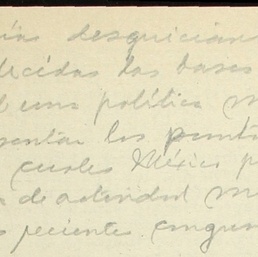 ías desquician
lecidas las bases
una política m
sentar los punto
cuales México p
de actividad m
s reciente congre